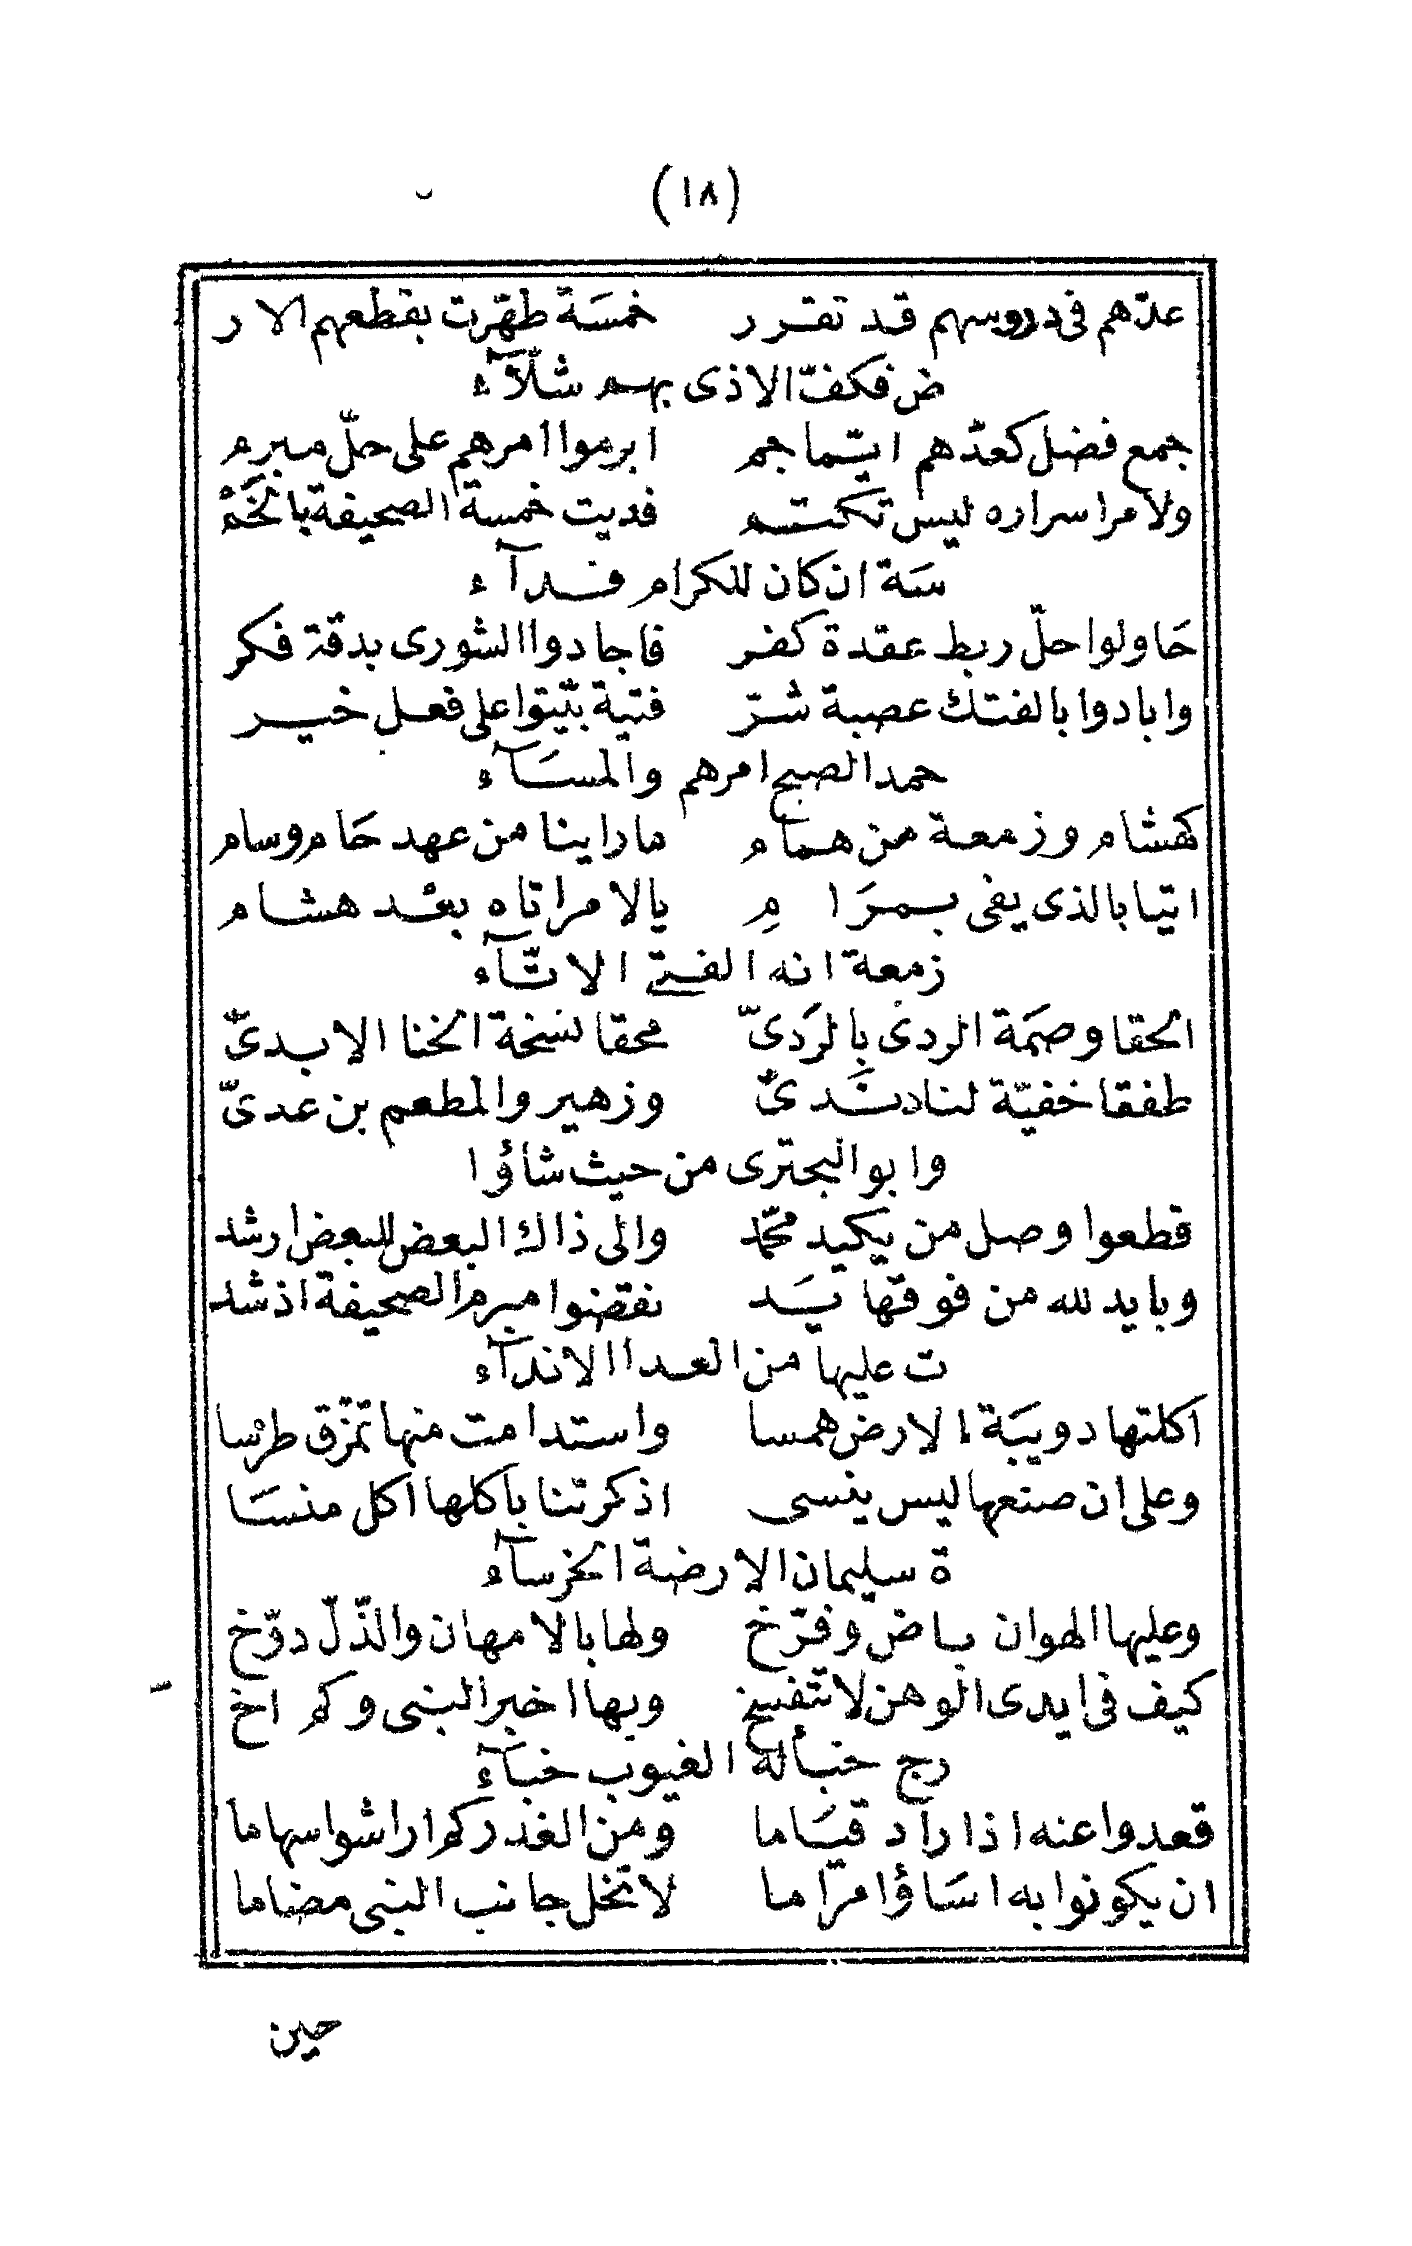 (١٨)
عدّهم فى دروسهم قد تقرر خمسَة طهّرت بقطعهم الار
ض فكفّ الاذى بهم شلّآء
جمع فضل كعدّهم ايّما جم ابرموا امرهم على حلّ مبرم
ولامر اسراره ليس تكتم فديت خمسة الصحيفة بالخَمْ
سَة ان كان للكرام فدآء
حَاولوا حلّ ربط عقدة كفر فاجادوا الشورى بدقة فكر
وابادوا بالفتك عصبة شرّ فتية بيّتوا على فعل خير
حمد الصبح امرهم والمسَآء
كهشام وزمعة من همام ماراينا من عهد حَام وسام
اتيا بالذى يفى بمرَا مِ يالامر اتاه بعْد هشام
زمعة انه الفتى الاتّآء
الحقا وصمَة الردى بِالرَدىّ محقا نسخة الخنا الابدىّ
طفقا خفيّة لنادندىّ وزهير والمطعم بن عدىّ
وابو البحترى من حيث شاؤا
قطعوا وصل من يكيد محمّد والى ذاك البعض للبعض ارشد
وبايد لله من فوقها يَد نقضوا مبرم الصحيفة اذ شد
ت عليها من العدا الاندآء
اكلتها دويبَة الارض همسا واستدامت منها تمزّق طرْسا
وعلى ان صنعها ليس ينسى اذكرتنا باكلها اكل منسَا
ة سليمان الارضة الخرسآء
وعليها الهوان باض وفرّخ ولها بالامهان والذّلّ دوّخ
كيف فى ايدى الوهن لا تتفسخ وبها اخبر النبى وكم اخ
رج خبأ له الغيوب خبآء
قعدوا عنه اذا راد قيَاما ومن الغدر كم اراشوا سهاما
ان يكونوا به اسَاؤا مرّاما لا تخل جانب النبى مضاما
حين